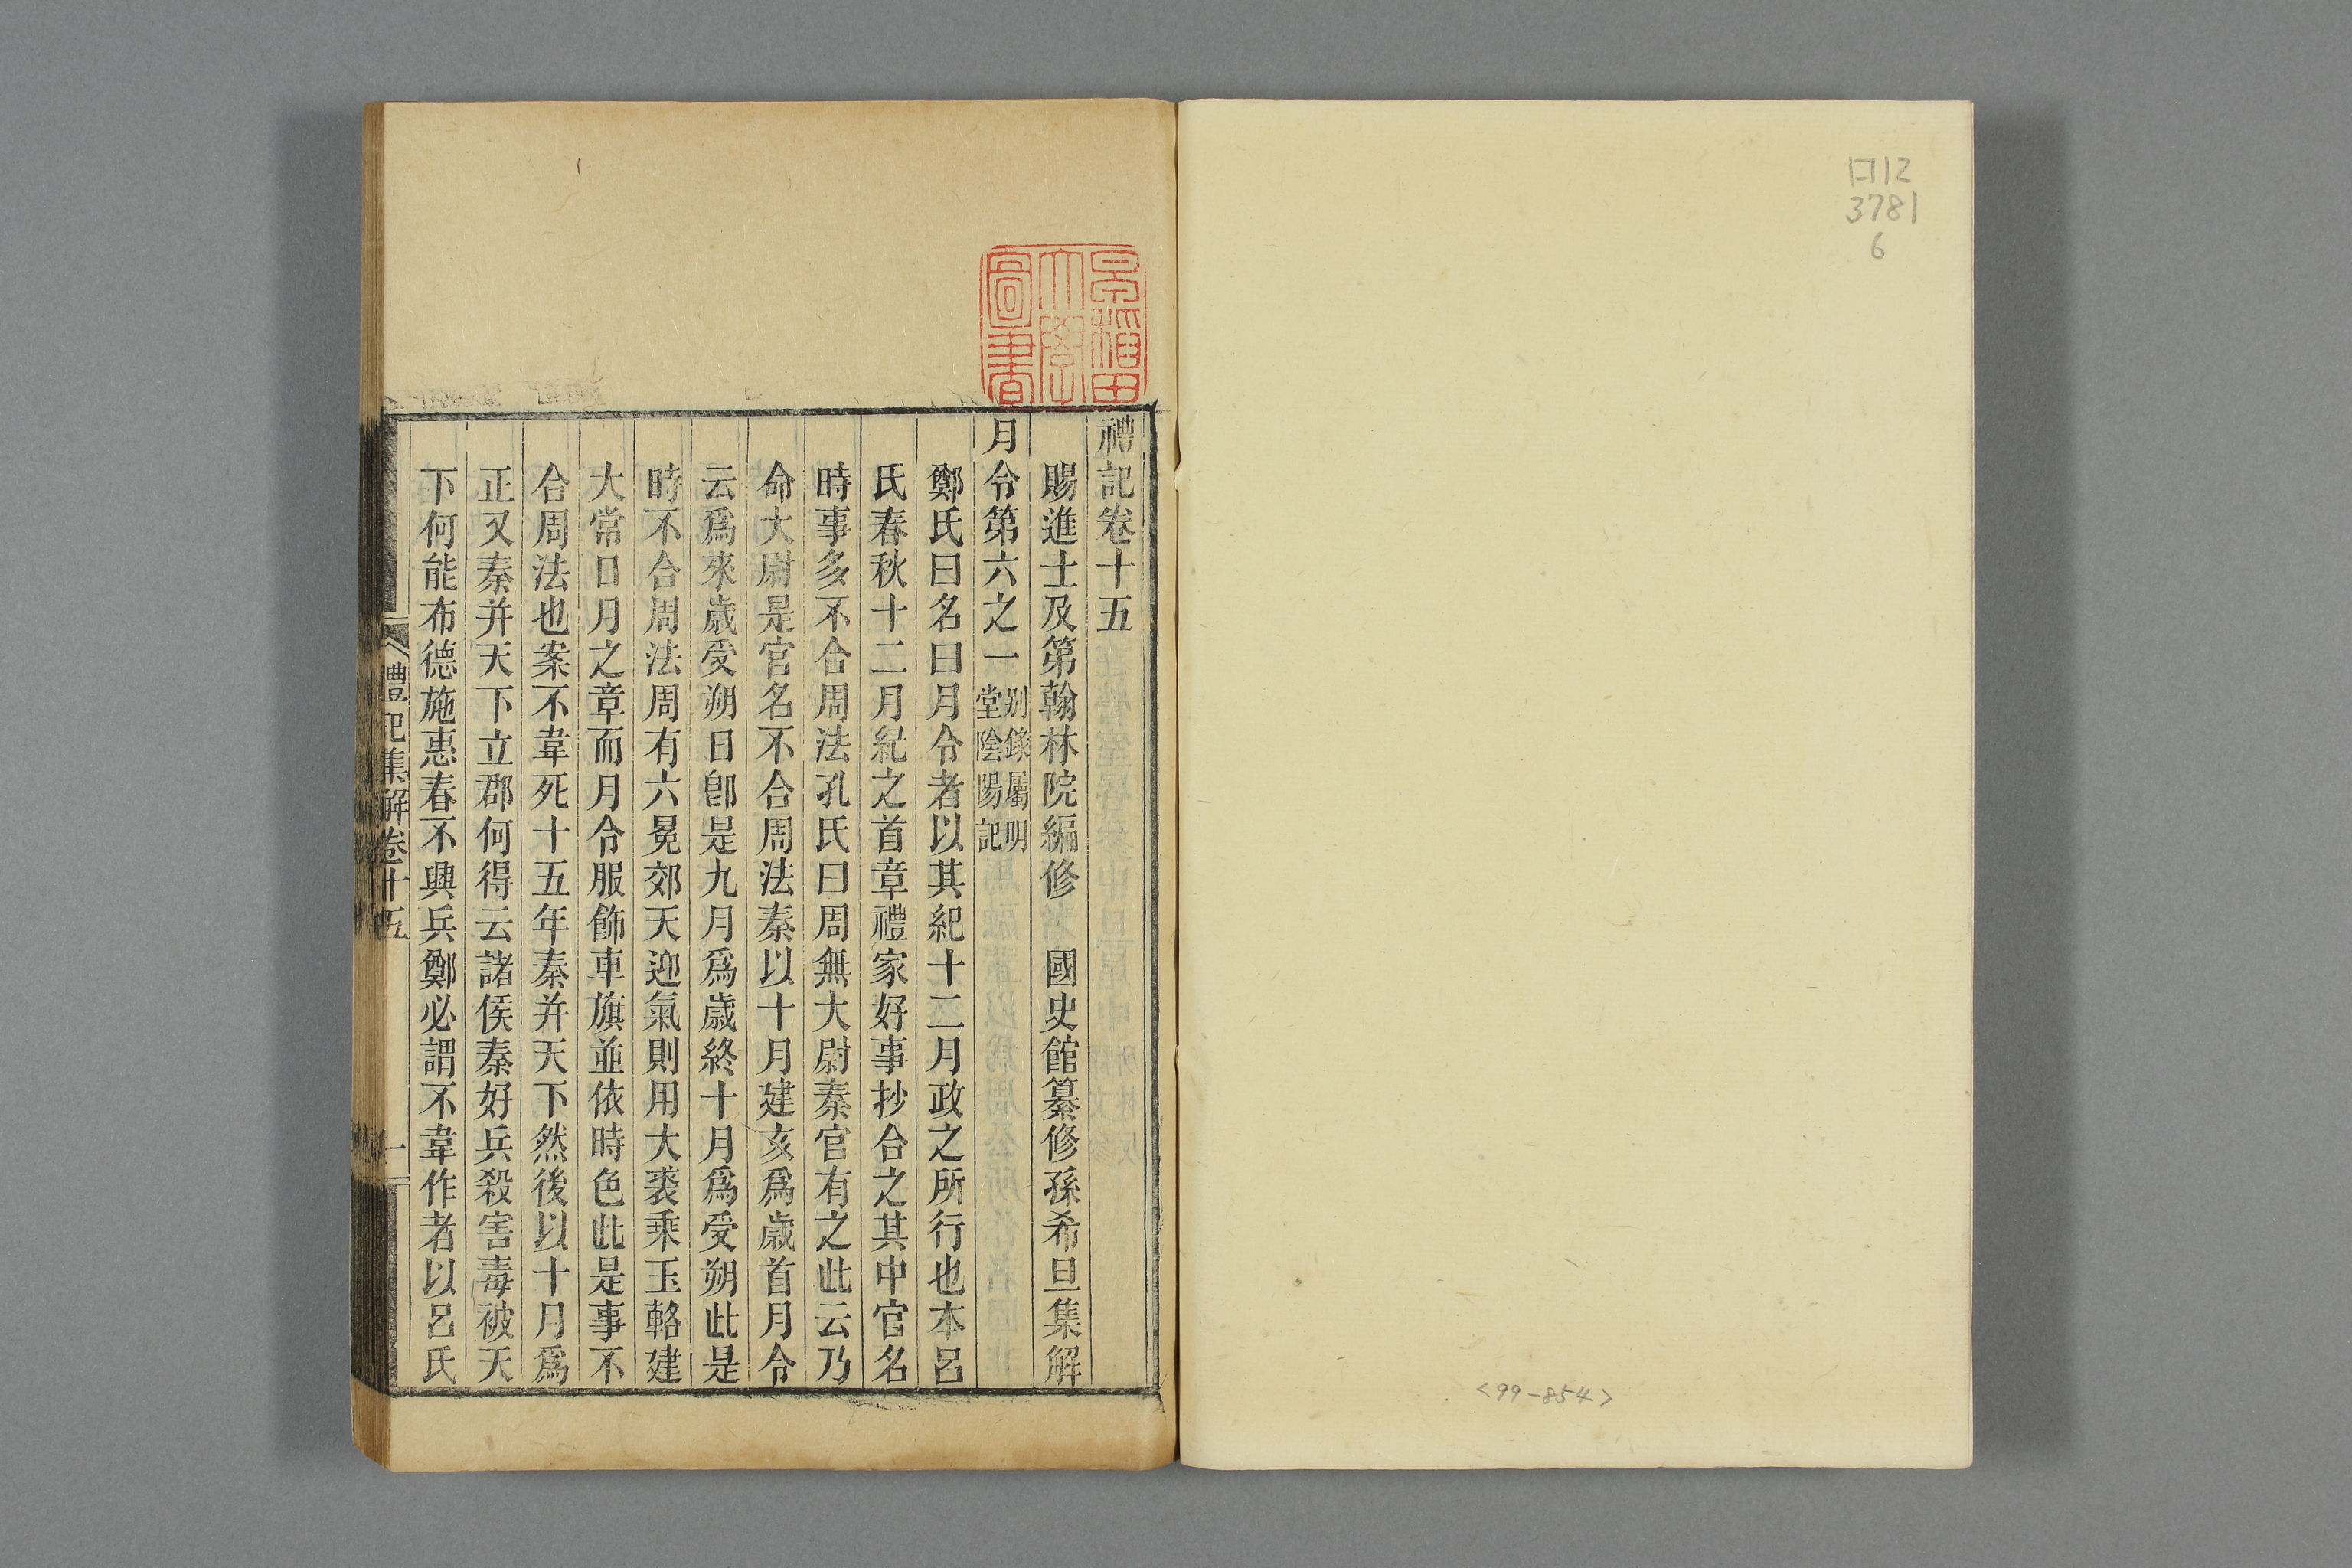 口12
3781
6
<99-854>
早稲田
大學
圖書
禮記卷十五
賜進士及第翰林院編修 國史館纂修孫希旦集解
月令第六之一別錄屬明
堂陰陽記
鄭氏曰名曰月令者以其紀十二月政之所行也本呂
氏春秋十二月紀之首章禮家好事抄合之其中官名
時事多不合周法孔氏曰周無大尉秦官有之此云乃
命大尉是官名不合周法秦以十月建亥爲歲首月令
云爲來歲受朔日卽是九月爲歲終十月爲受朔此是
時不合周法周有六冕郊天迎氣則用大裘乘玉輅建
大常日月之章而月令服飾車旗並依時色此是事不
合周法也案不韋死十五年秦并天下然後以十月爲
正又秦并天下立郡何得云諸侯秦好兵殺害毒被天
下何能布德施惠春不興兵鄭必謂不韋作者以呂氏
禮記集解卷十五
一